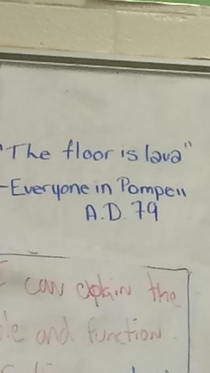 "The floor is lava"
-Everyone in Pompeii
A.D. 79
I can explain the
and function